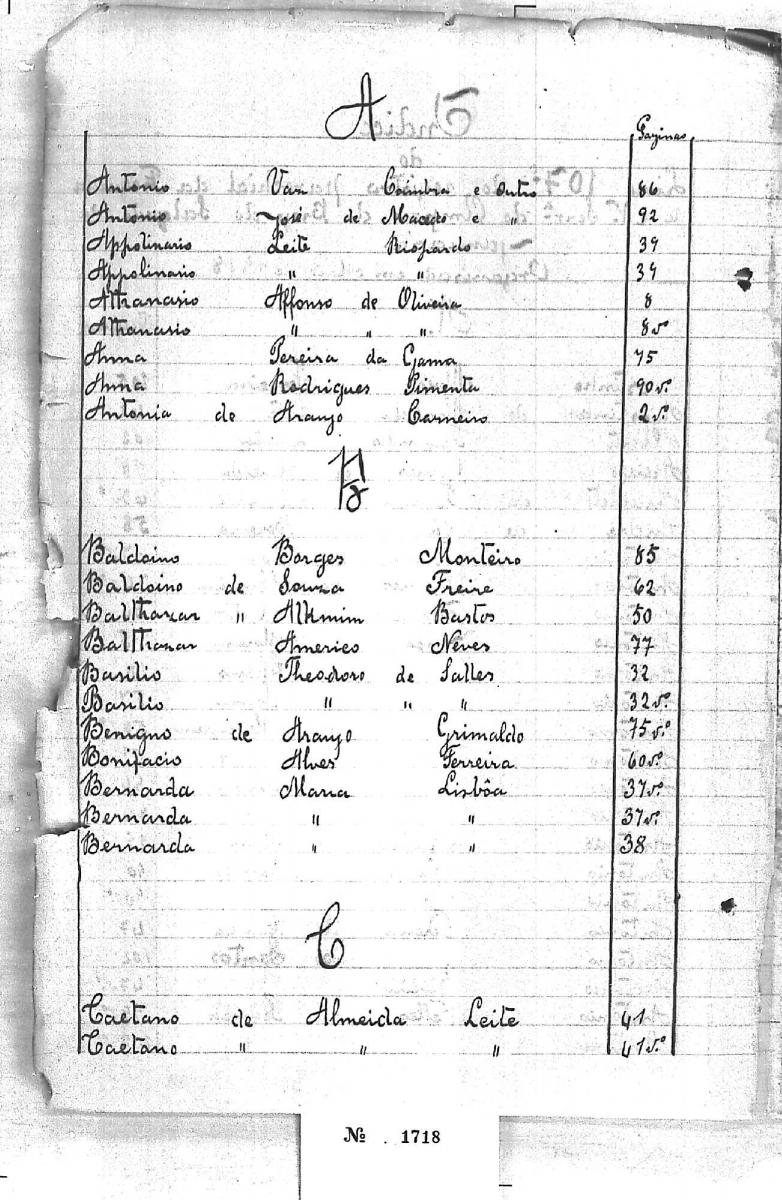 A
Paginas
Antonio Vaz Coimbra e outro 86
Antonio José de Macedo e " 92
Appolinario Leite Riopardo 39
Appolinario " " 39
Athanasio Affonso de Oliveira 8
Athanasio " " " 8vº
Anna Pereira da Gama 75
Anna Rodrigues Pimenta 90vº
Antonia de Araujo Carneiro 2vº
B
Baldoino Borges Monteiro 85
Baldoino de Souza Freire 62
Balthazar " Alkmim Bastos 50
Balthazar Americo Neves 77
Basilio Theodoro de Salles 32
Basilio " " " 32vº
Benigno de Araujo Grimaldo 75vº
Bonifacio Alves Ferreira 60vº
Bernarda Maria Lisbôa 37vº
Bernarda " " 37vº
Bernarda " " 38
C
Caetano de Almeida Leite 41
Caetano " " " 41vº
Nº . 1718